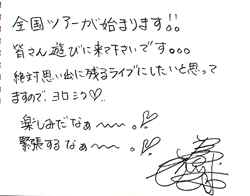 全国ツアーが始まります!!
皆さん遊びに来て下さいです。。。
絶対思い出に残るライブにしたいと思って
ますので、ヨロシク♡..
楽しみだなぁ〜〜。
緊張するなぁ〜〜。